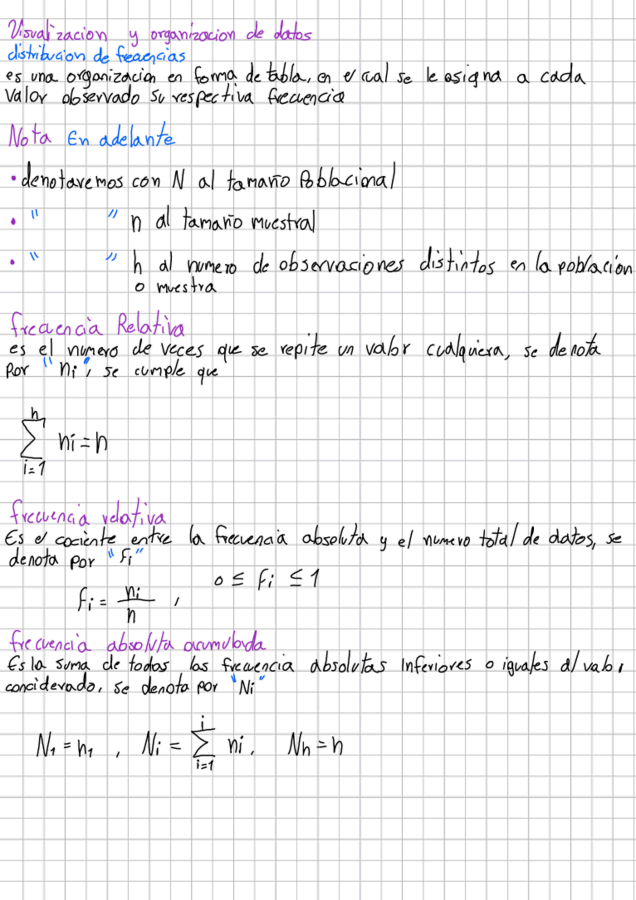 Visualizacion y organizacion de datos
distribucion de frecencias
es una organización en forma de tabla, en el cual se le asigna a cada
valor observado su respectiva frecuencia
Nota En adelante
• denotaremos con N al tamaño Poblacional
• " " n al tamaño muestral
• " " h al numero de observaciones distintos en la población
o muestra
frecuencia Relativa
es el numero de veces que se repite un valor cualquiera, se denota
por "ni", se cumple que
h
∑ ni = n
i=1
frecuencia relativa
Es el cociente entre la frecuencia absoluta y el numero total de datos, se
denota por "fi"
fi = ni/n , 0 ≤ fi ≤ 1
frecuencia absoluta acumulada
Es la suma de todos las frecuencia absolutas Inferiores o iguales al valor
conciderado, se denota por "Ni"
i
N1 = n1 , Ni = ∑ ni, Nh = n
i=1